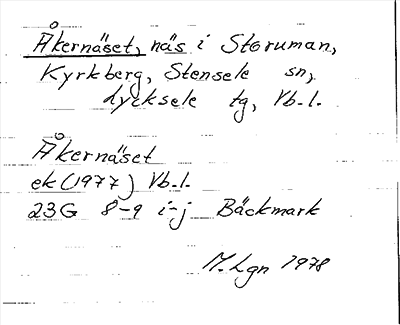 Åkernäset, näs i Storuman,
Kyrkberg, Stensele sn,
Lycksele tg, Vb.l.
Åkernäset
ek (1977) Vb.l.
23G 8-9 i-j Bäckmark
M.Lgn 1978